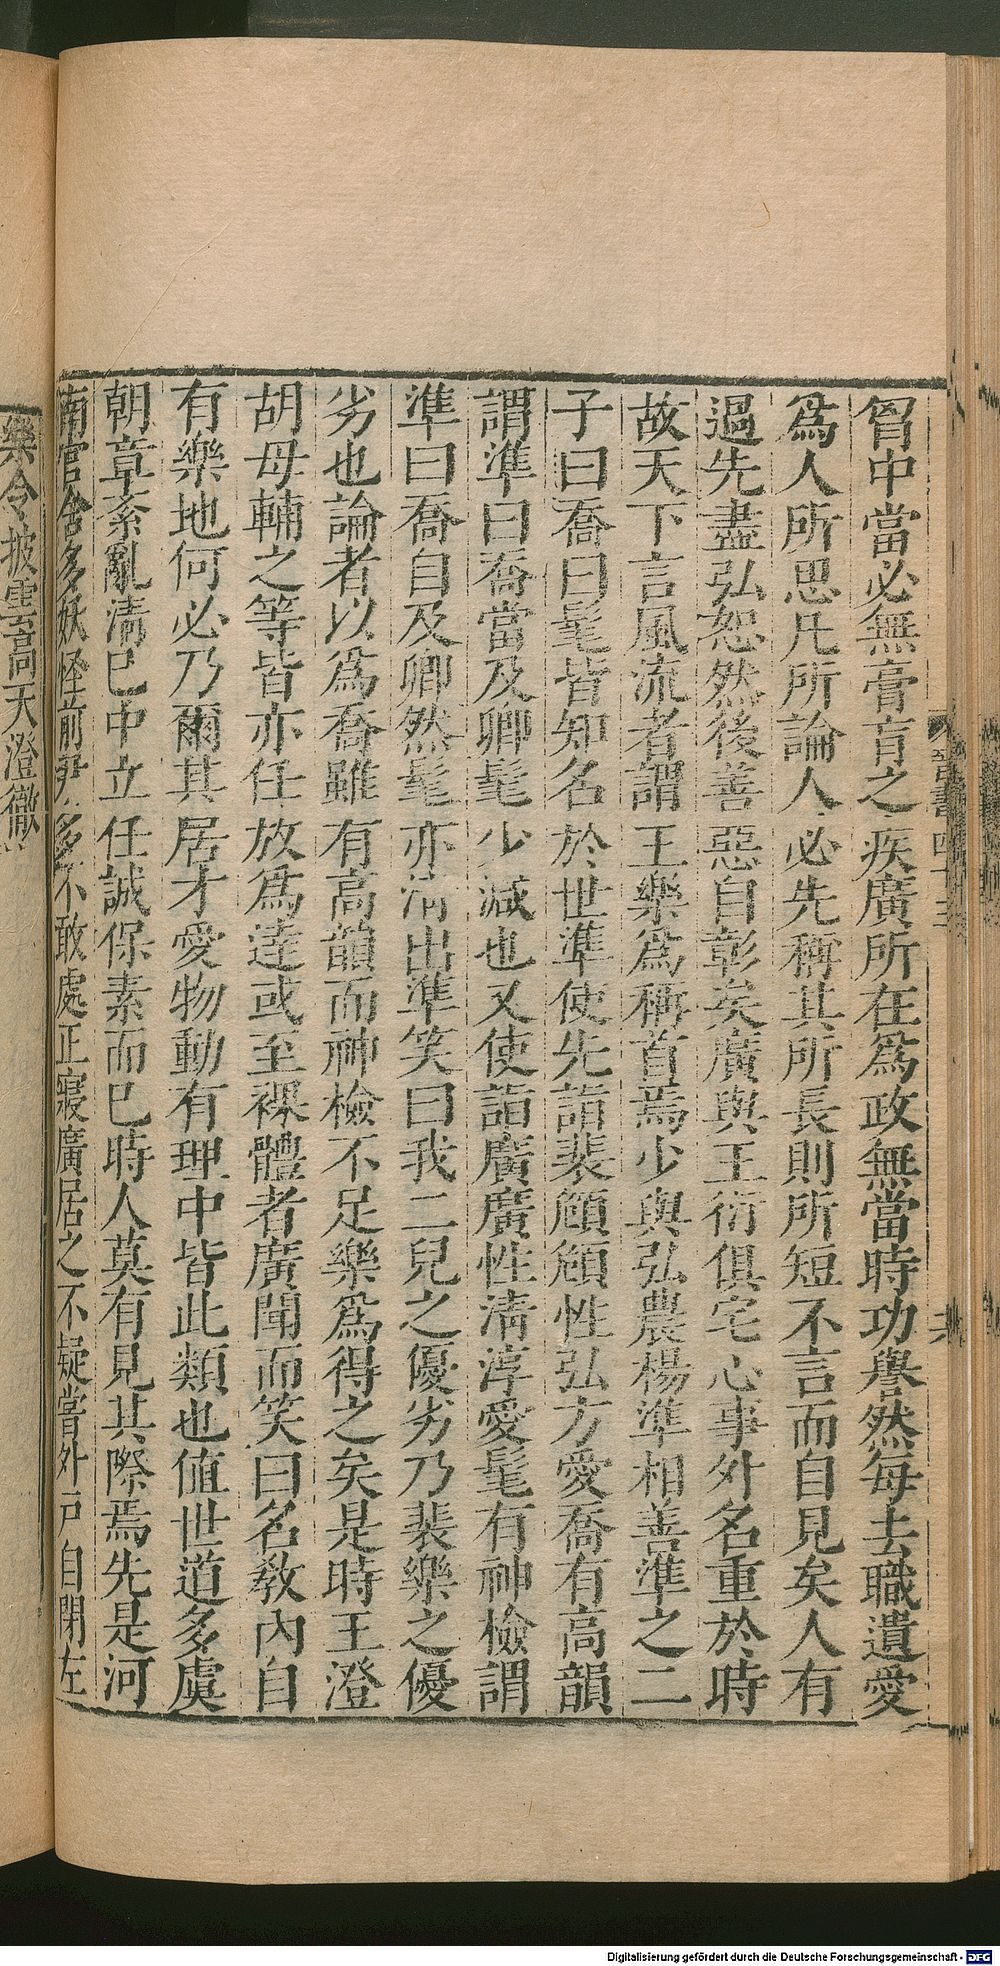 胷中當必無膏肓之疾廣所在爲政無當時功譽然每去職遺愛
爲人所思凡所論人必先稱其所長則所短不言而自見矣人有
過先盡弘恕然後善惡自彰矣廣與王衍俱宅心事外名重於時
故天下言風流者謂王樂爲稱首焉少與弘農楊準相善準之二
子曰喬曰髦皆知名於世準使先詣裴頠頠性弘方愛喬有高韻
謂準曰喬當及卿髦少減也又使詣廣廣性淸淳愛髦有神檢謂
準曰喬自及卿然髦亦淸出準笑曰我二兒之優劣乃裴樂之優
劣也論者以爲喬雖有高韻而神檢不足樂爲得之矣是時王澄
胡母輔之等皆亦任放爲達或至裸體者廣聞而笑曰名敎內自
有樂地何必乃爾其居才愛物動有理中皆此類也値世道多虞
朝章紊亂淸已中立任誠保素而已時人莫有見其際焉先是河
南官舍多妖怪前尹多不敢處正寢廣居之不疑嘗外戸自閉左
樂令披雲高天澄徹
四十三
六
Digitalisierung gefördert durch die Deutsche Forschungsgemeinschaft - DFG